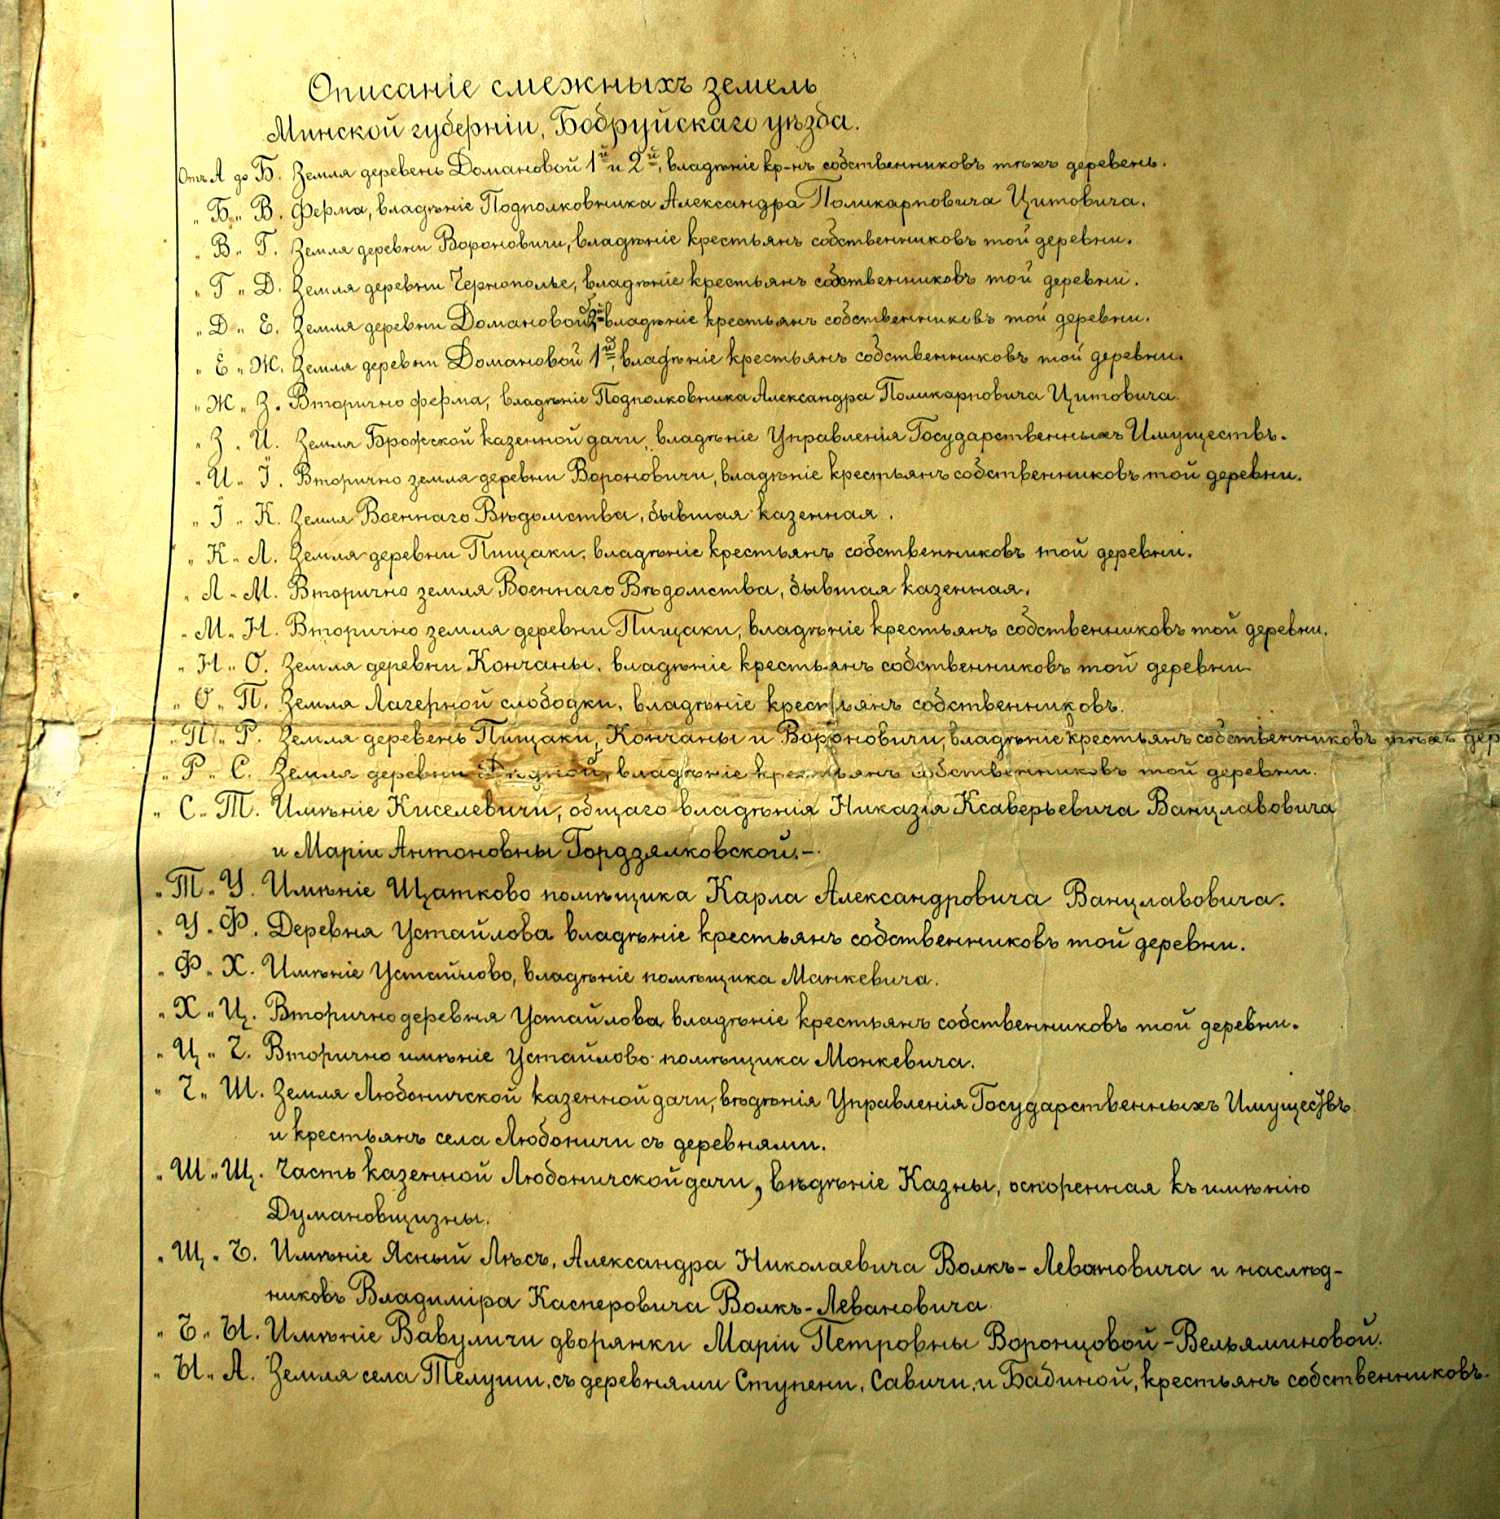 Описаніе смежныхъ земель
Минской губерніи, Бобруйскаго уѣзда.
Отъ А до Б. Земля деревень Домановой 1й и 2й, владѣніе кр-нъ собственниковъ тѣхъ деревень.
„ Б „ В. Ферма, владѣніе Подполковника Александра Поликарповича Цитовича.
„ В „ Г. Земля деревни Вороновичи, владѣніе крестьянъ собственниковъ той деревни.
„ Г „ Д. Земля деревни Чернополье, владѣніе крестьянъ собственниковъ той деревни.
„ Д „ Е. Земля деревни Домановой 2й владѣніе крестьянъ собственниковъ той деревни.
„ Е „ Ж. Земля деревни Домановой 1й, владѣніе крестьянъ собственниковъ той деревни.
„ Ж „ З. Вторично ферма, владѣніе Подполковника Александра Поликарповича Цитовича.
„ З „ И. Земля Брожской казенной дачи, владѣніе Управленія Государственныхъ Имуществъ.
„ И „ І. Вторично земля деревни Вороновичи, владѣніе крестьянъ собственниковъ той деревни.
„ І „ К. Земля Военнаго Вѣдомства, бывшая казенная.
„ К „ Л. Земля деревни Пищаки, владѣніе крестьянъ собственниковъ той деревни.
„ Л „ М. Вторично земля Военнаго Вѣдомства, бывшая казенная.
„ М „ Н. Вторично земля деревни Пищаки, владѣніе крестьянъ собственниковъ той деревни.
„ Н „ О. Земля деревни Кончаны, владѣніе крестьянъ собственниковъ той деревни.
„ О „ П. Земля Лагерной слободки, владѣніе крестьянъ собственниковъ.
„ П „ Р. Земля деревень Пищаки, Кончаны и Вороновичи, владѣніе крестьянъ собственниковъ тѣхъ дер
„ Р „ С. Земля деревни владѣніе крестьянъ собственниковъ той деревни.
„ С „ Т. Имѣніе Киселевичи, общаго владѣнія Никазія Ксаверьевича Ванцлавовича
и Маріи Антоновны Гордзялковской.–
„ Т „ У. Имѣніе Щатково помѣщика Карла Александровича Ванцлавовича.
„ У „ Ф. Деревня Устайлова владѣніе крестьянъ собственниковъ той деревни.
„ Ф „ Х. Имѣніе Устайлово, владѣніе помѣщика Манкевича.
„ Х „ Ц. Вторично деревня Устайлова владѣніе крестьянъ собственниковъ той деревни.
„ Ц „ Ч. Вторично имѣніе Устайлово помѣщика Монкевича.
„ Ч „ Ш. Земля Любоничской казенной дачи, вѣдѣнія Управленія Государственныхъ Имуществъ
и крестьянъ села Любоничи съ деревнями.
„ Ш „ Щ. Часть казенной Любоничской дачи, вѣдѣніе Казны, оспоренная къ имѣнію
Думановщизны.
„ Щ „ Ъ. Имѣніе Ясный Лѣсъ, Александра Николаевича Волкъ-Левановича и наслѣд-
никовъ Владиміра Касперовича Волкъ-Левановича
„ Ъ „ Ы. Имѣніе Вавуличи дворянки Маріи Петровны Воронцовой-Вельяминовой.
„ Ы „ А. Земля села Телуши, съ деревнями Ступени, Савичи, и Бабиной, крестьянъ собственниковъ.